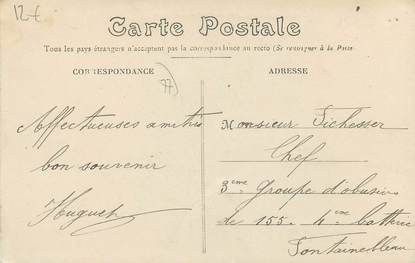 12€
Carte Postale
Tous les pays étrangers n'acceptent pas la correspondance au recto (Se renseigner à la Poste
CORRESPONDANCE
ADRESSE
77)
Affectueuses amitiés
bon souvenir
Huguet
Monsieur Fichesser
Chef
3eme Groupe d'obusiers
de 155. 4eme batterie
Fontainebleau